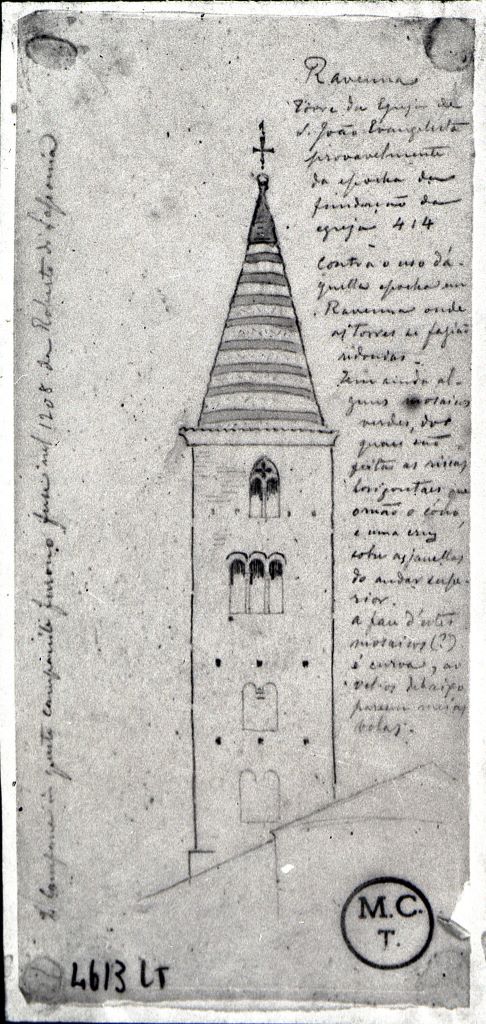 Ravenna
Torre da Egreja de
S. João Evangelista
provavelmente
da epocha da
fundação da
egreja 414
Contra o uso dá-
quella epocha em
Ravenna onde
as torres se fazião
redondas.
Tem ainda al-
guns mosaicos
verdes, dos
quaes são
feitas as riscas
horizontaes que
ornão o cóne,
e uma cruz
sobre as janellas
do andar supe-
rior.
a face d'estes
mosaicos (?)
é curva, e ao
vel-os debaixo
parecem meias
bolas.
2 Campane in questo campanile furono fuse nel 1208 da Roberto di Sassonia
4613 LT
M.C.
T.